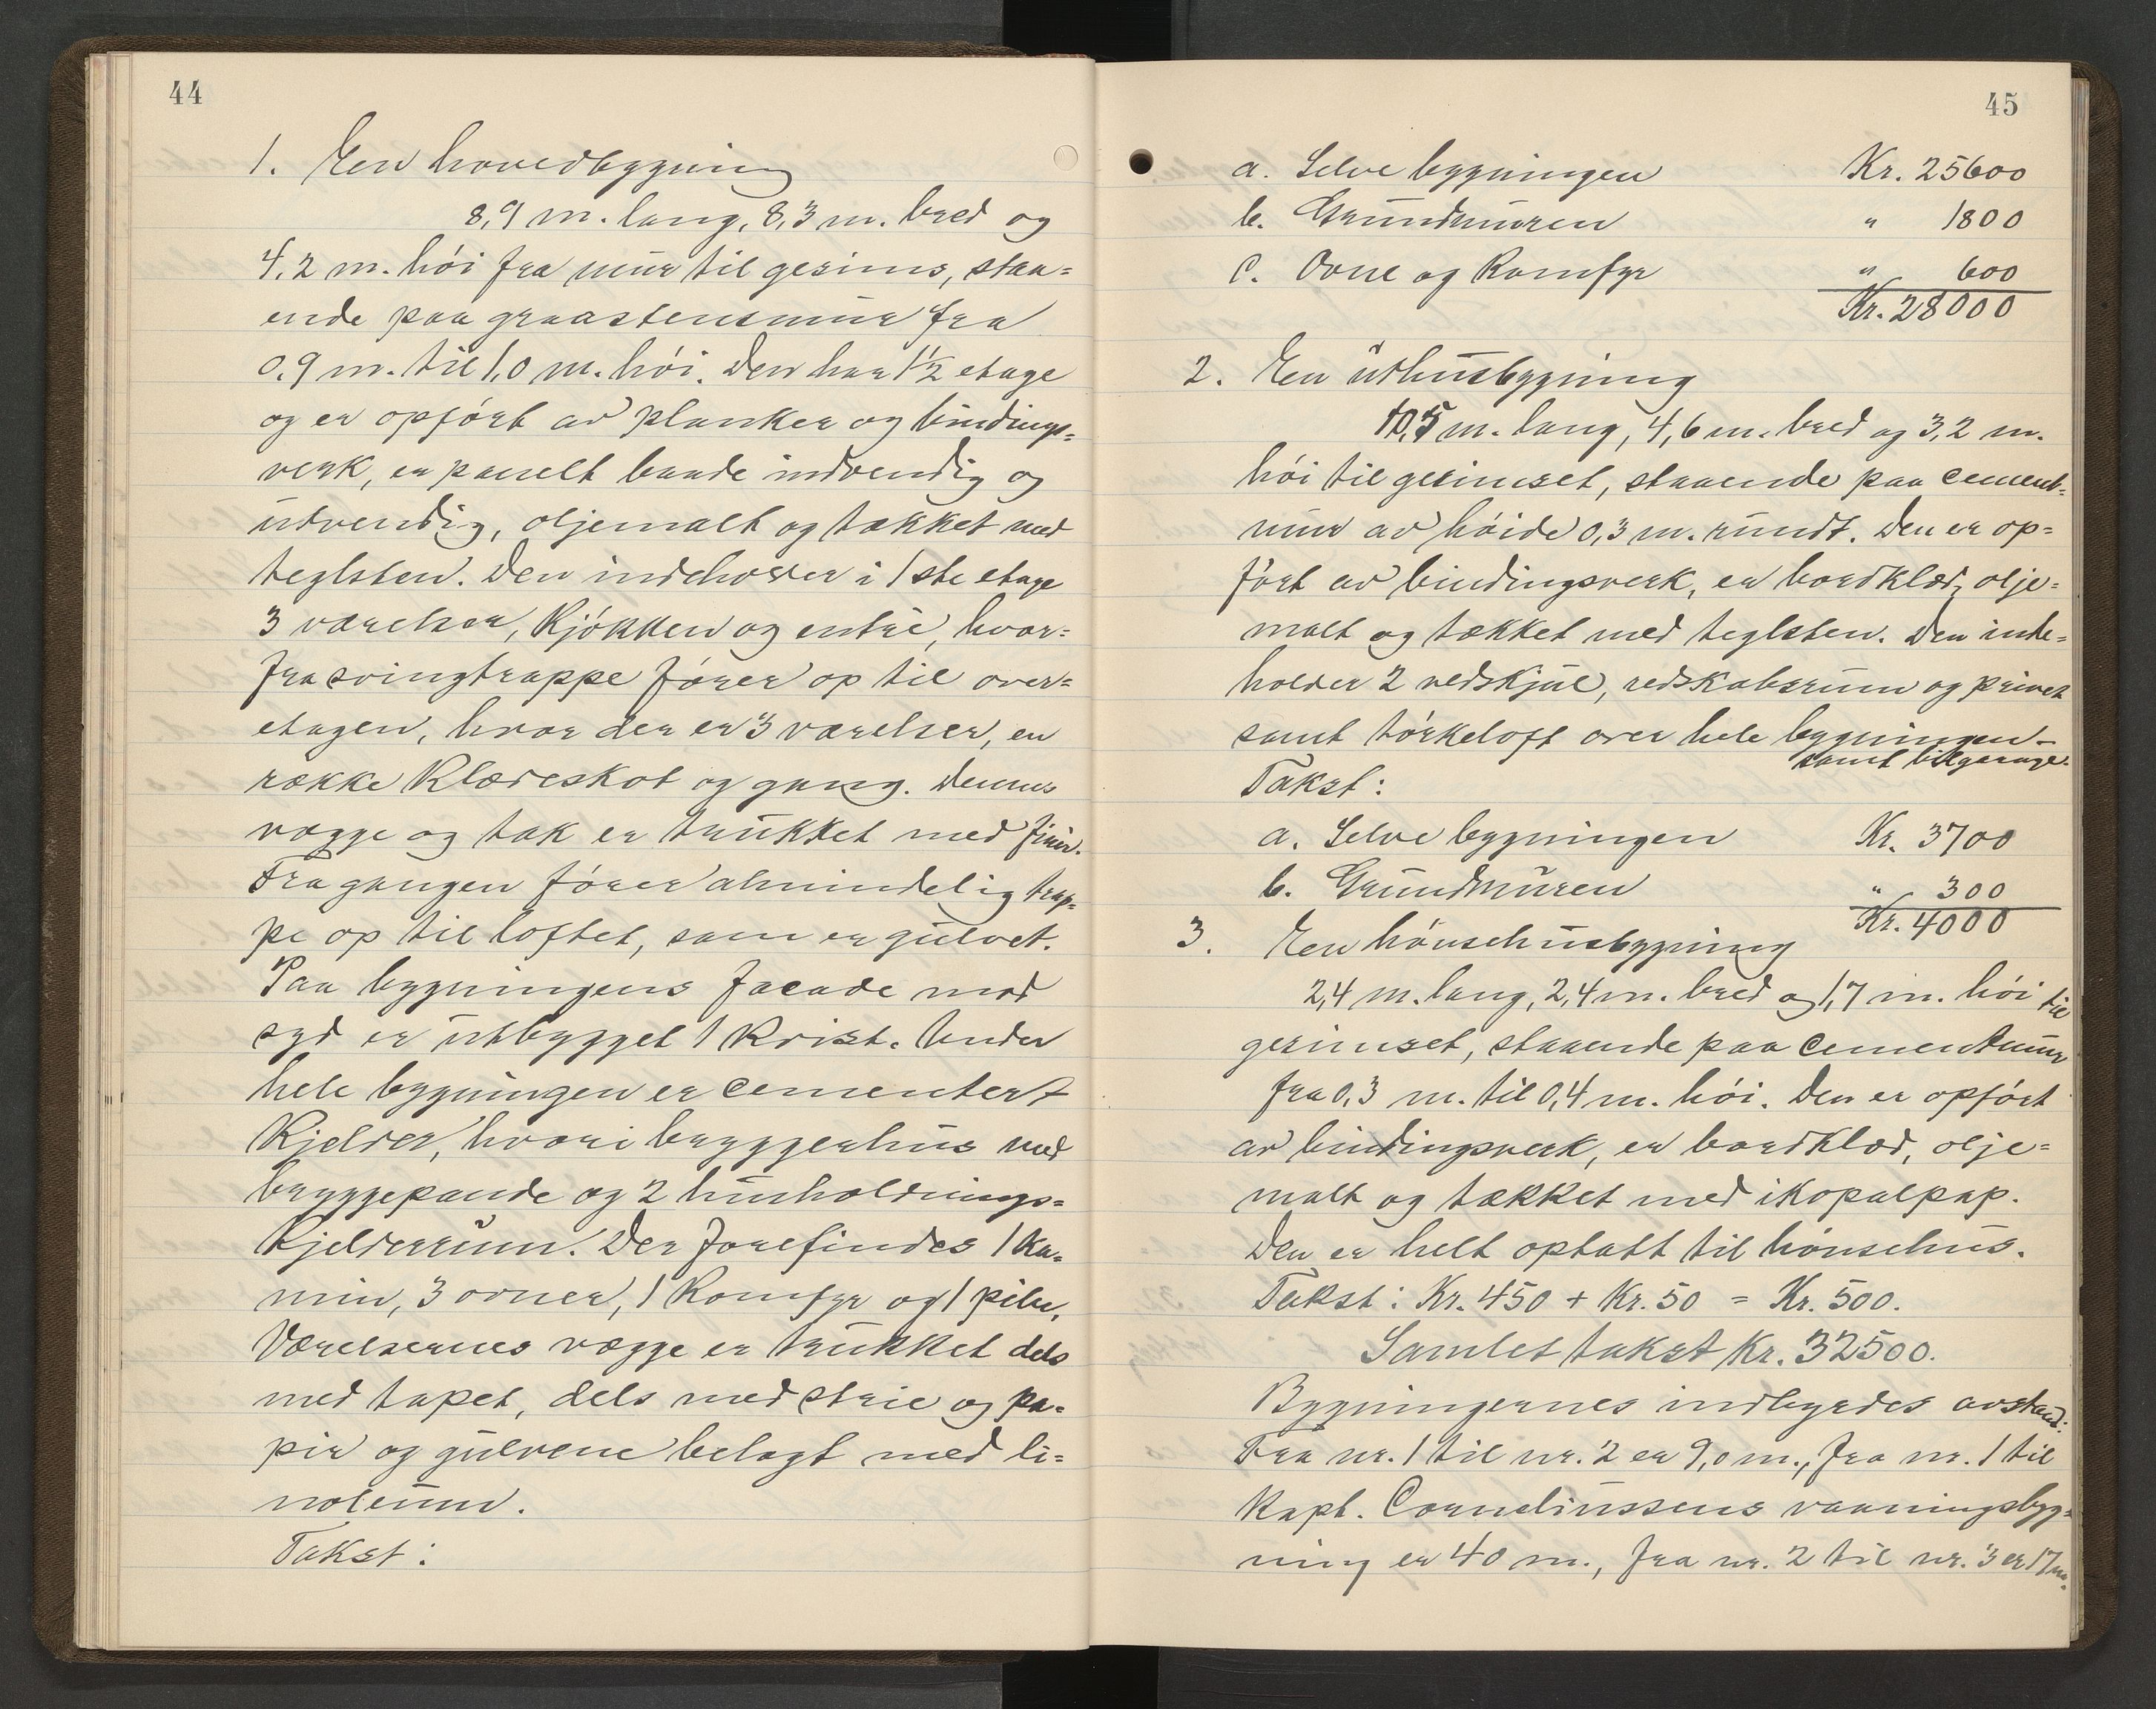 44
1. En hovedbygning
8,9 m. lang, 8,3 m. bred og
4,2 m. hói fra mur til gesims, staa=
ende paa graastensmur fra
0,9 m. til 1,0 m. hói. Den har 1½ etage
og er opfórt av planker og bindings=
verk, er panelt baade indvendig og
utvendig, oljemalt og tækket med
teglsten. Den indehoder i 1ste etage
3 værelser, kjókken og entré, hvor=
fra svingtrappe fórer op til over=
etagen, hvor der er 3 værelser, en
række klædeskot og gang. Dennes
vægge og tak er trukket med finér.
Fra gangen fórer almindelig trap=
pe op til loftet, som er gulvet.
Paa bygningens facade mod
syd er utbygget 1 kvist. Under
hele bygningen er cementert
kjelder, hvori bryggerhus med
bryggepande og 2 husholdnings=
kjelderrum. Der forefindes 1 ka=
min, 3 ovner, 1 komfyr og 1 pibe.
Værelsernes vægge er trukket dels
med tapet, dels med strie og pa=
pir og gulvene belagt med li=
noleum.
Takst:
45
a. Selve bygningen Kr. 25600
b. Grundmuren " 1800
c. Ovne og Komfyr " 600
Kr. 28000
2. En uthusbygning
10,5 m. lang, 4,6 m. bred og 3,2 m.
hói til gesimset, staaende paa cement=
mur av hóide 0,3 m. rundt. Den er op=
fórt av bindingsverk, er bordklæd, olje=
malt og tækket med teglsten. Den inde=
holder 2 vedskjul, redskabsrum og privet
samt tórkeloft over hele bygningen
samt bilgarage.
Takst:
a. Selve bygningen Kr. 3700
b. Grundmuren " 300
Kr. 4000
3. En hónsehusbygning
2,4 m. lang, 2,4 m. bred og 1,7 m. hói til
gesimset, staaende paa cementmur
fra 0,3 m. til 0,4 m. hói. Den er opfórt
av bindingsverk, er bordklæd, olje=
malt og tækket med ikopalpap.
Den er helt optatt til hónsehus.
Takst: Kr. 450 + Kr. 50 = Kr. 500.
Samlet takst Kr. 32500.
Bygningernes indbyrdes avstand:
Fra nr. 1 til nr. 2 er 9,0 m., fra nr. 1 til
Kapt. Corneliussens vaaningsbyg=
ning er 40 m., fra nr. 2 til nr. 3 er 17 m.